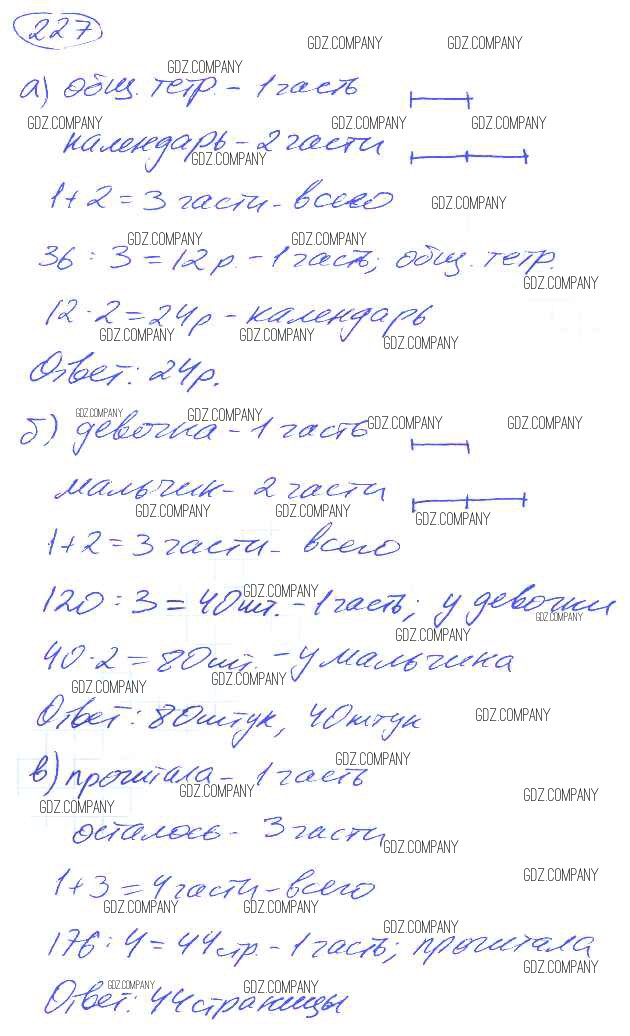 227
GDZ.COMPANY GDZ.COMPANY
GDZ.COMPANY
а) общ. тетр. - 1 часть
GDZ.COMPANY GDZ.COMPANY GDZ.COMPANY
календарь - 2 части
GDZ.COMPANY
1+2=3 части - всего GDZ.COMPANY
GDZ.COMPANY GDZ.COMPANY
36 : 3 = 12 р. - 1 часть; общ. тетр.
GDZ.COMPANY
12 · 2 = 24 р - календарь
GDZ.COMPANY GDZ.COMPANY GDZ.COMPANY
Ответ: 24 р.
GDZ.COMPANY GDZ.COMPANY GDZ.COMPANY GDZ.COMPANY
б) девочка - 1 часть
мальчик - 2 части
GDZ.COMPANY GDZ.COMPANY GDZ.COMPANY
1+2=3 части - всего
GDZ.COMPANY
120 : 3 = 40 шт. - 1 часть; у девочки
GDZ.COMPANY
GDZ.COMPANY
40 · 2 = 80 шт. - у мальчика
GDZ.COMPANY GDZ.COMPANY
Ответ: 80 штук, 40 штук GDZ.COMPANY
GDZ.COMPANY
в) прочитала - 1 часть
GDZ.COMPANY GDZ.COMPANY
GDZ.COMPANY
осталось - 3 части
GDZ.COMPANY
GDZ.COMPANY
1+3=4 части - всего
GDZ.COMPANY GDZ.COMPANY
GDZ.COMPANY
176 : 4 = 44 стр. - 1 часть; прочитала
GDZ.COMPANY
GDZ.COMPANY GDZ.COMPANY
Ответ: 44 страницы